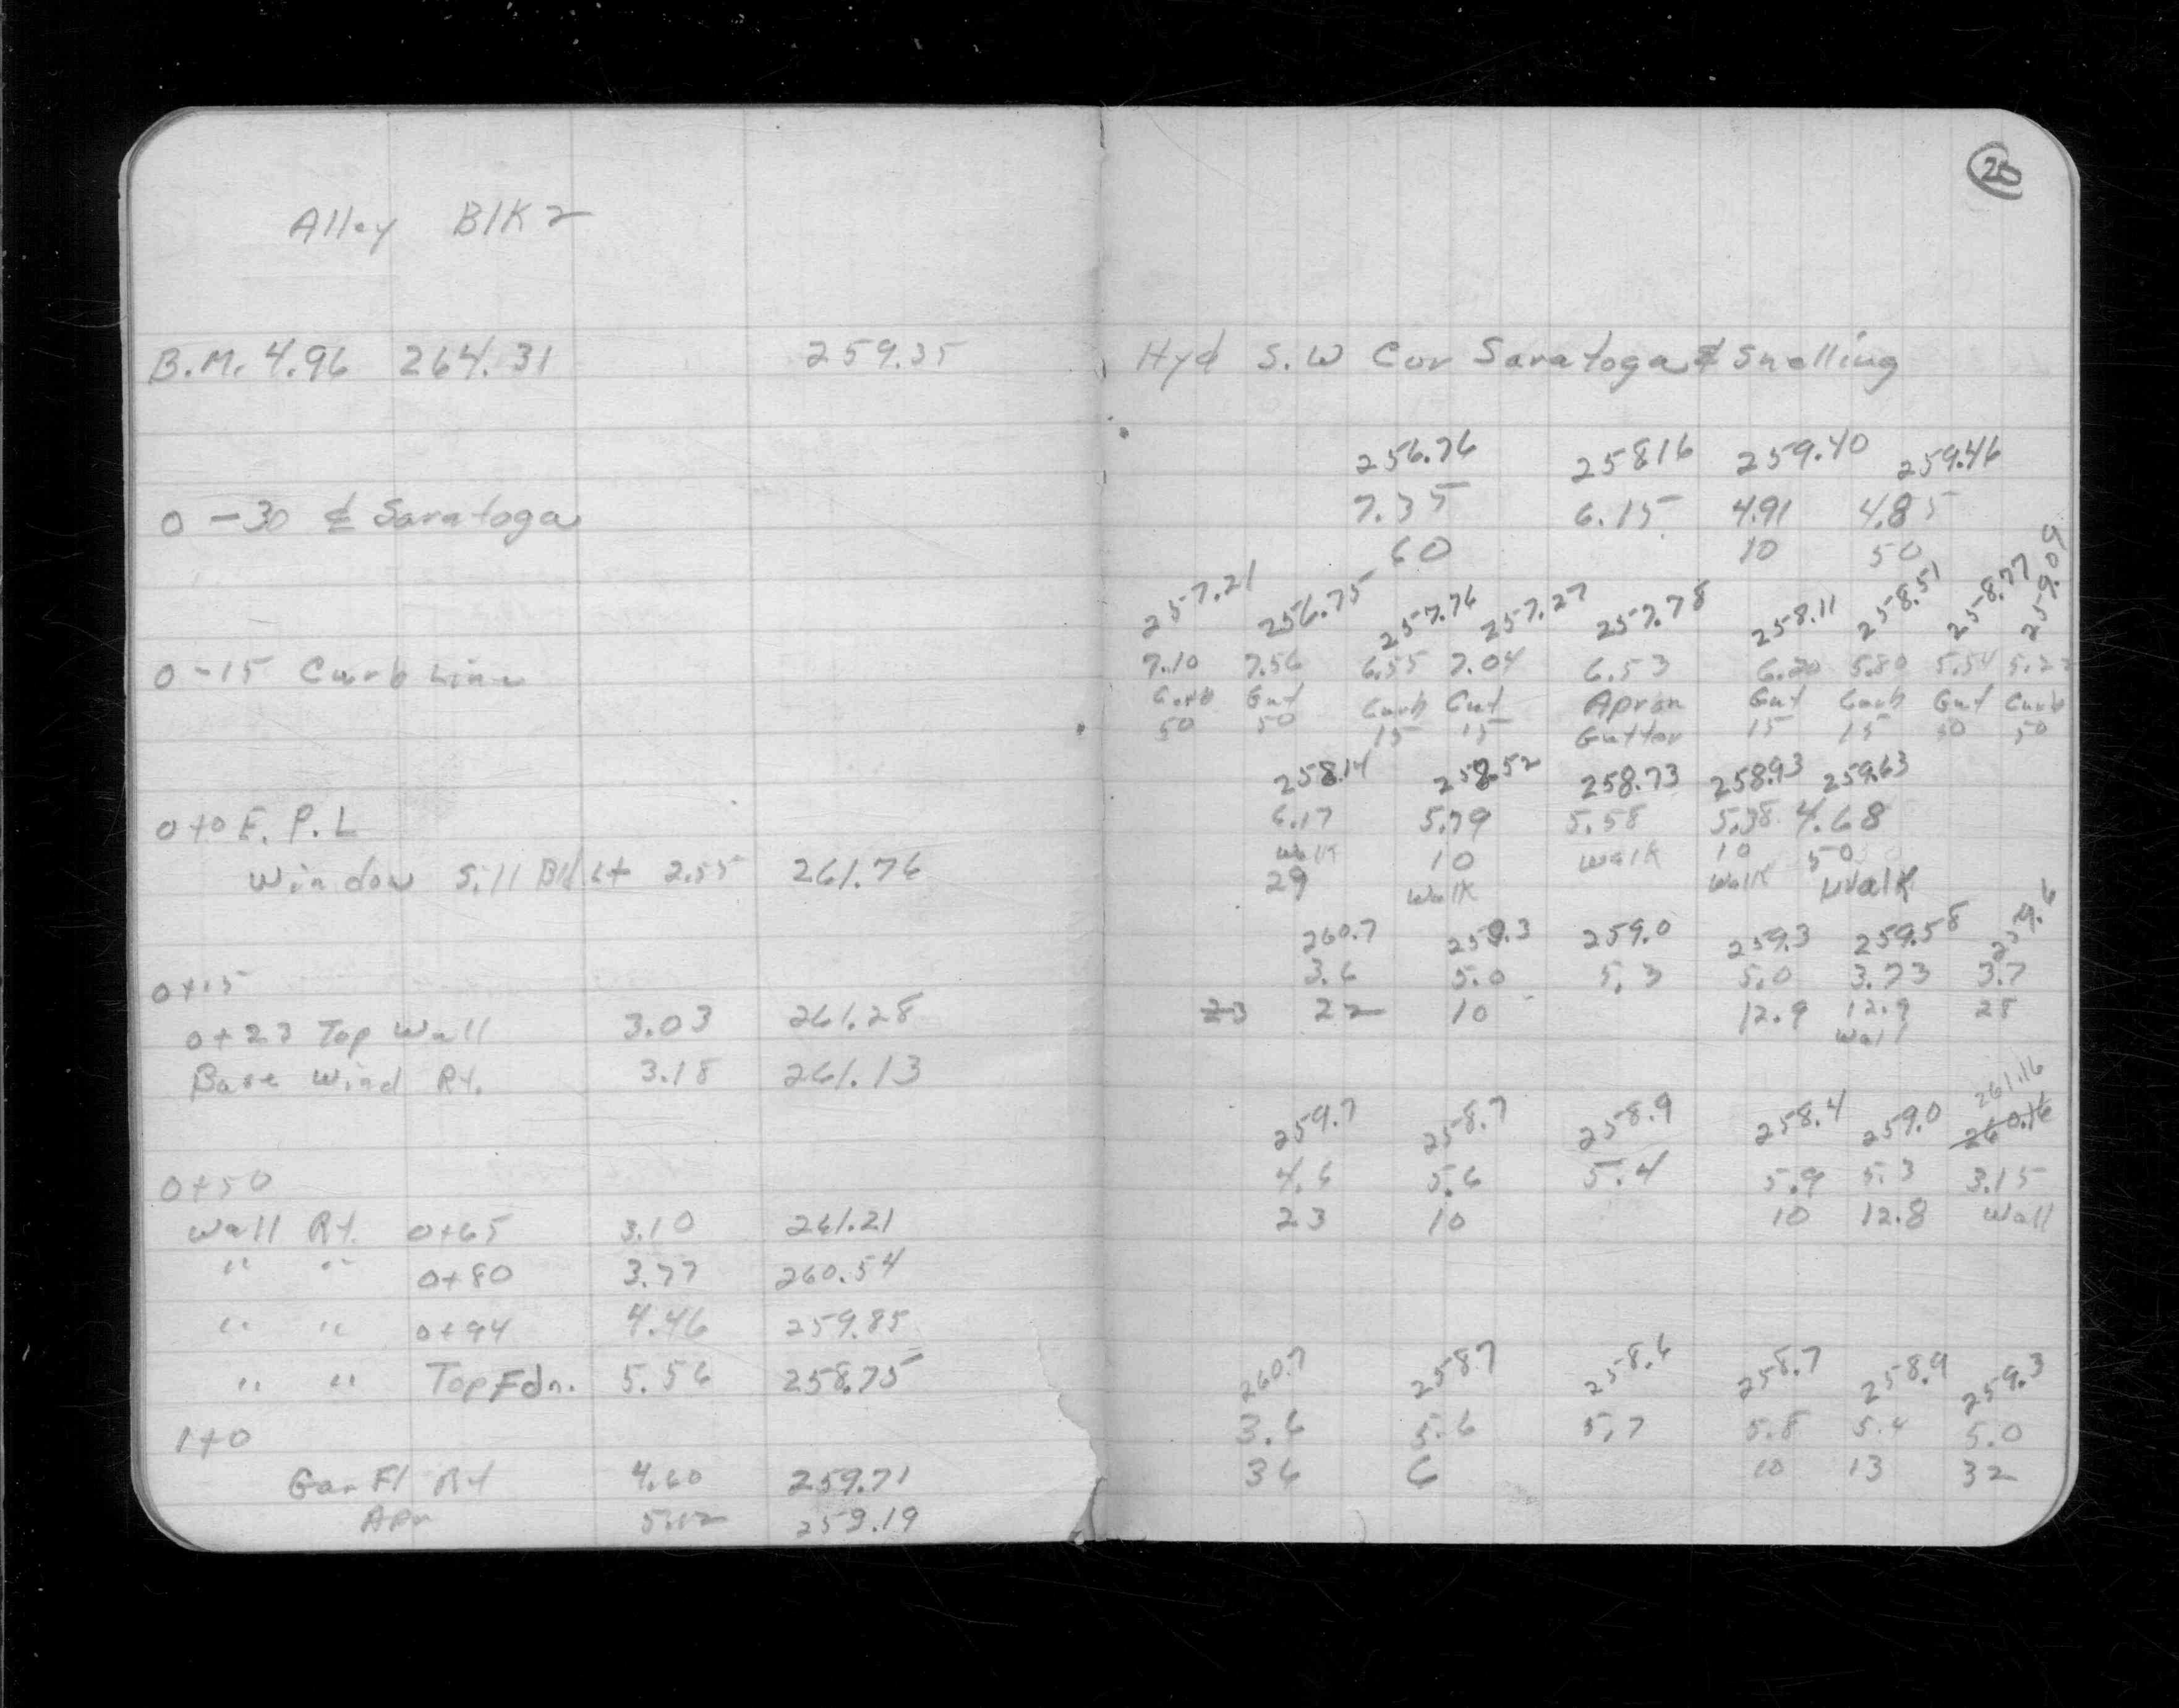 20
Alley Blk 2
B.M. 4.96 264.31 259.35 Hyd S.W Cor Saratoga & Snelling
256.76 258.16 259.40 259.46
0-30 ₵ Saratoga 7.35 6.15 4.91 4.85
60 10 50
257.21 256.75 257.76 257.27 257.78 258.11 258.51 258.77 259.09
0-15 Curb Line 7.10 7.56 6.55 7.04 6.53 6.20 5.80 5.54 5.22
Curb Gut Curb Gut Apron Gut Curb Gut Curb
50 50 15 15 Gutter 15 15 50 50
258.14 258.52 258.73 258.93 259.63
0+0 E. P. L 6.17 5.79 5.58 5.38 4.68
Window Sill Bld Lt 2.55 261.76 Walk 10 Walk 10 50
29 Walk Walk Walk
260.7 259.3 259.0 259.3 259.58 259.6
0+15 3.6 5.0 5.3 5.0 3.73 3.7
0+23 Top Wall 3.03 261.28 23 22 10 12.9 12.9 28
Wall
Base Wind Rt. 3.18 261.13
261.16
259.7 258.7 258.9 258.4 259.0 260.16
0+50 4.6 5.6 5.4 5.9 5.3 3.15
Wall Rt. 0+65 3.10 261.21 23 10 10 12.8 Wall
" " 0+80 3.77 260.54
" " 0+94 4.46 259.85
" " Top Fdn. 5.56 258.75 260.7 258.7 258.6 258.7 258.9 259.3
1+0 3.6 5.6 5.7 5.8 5.4 5.0
Gar Fl Rt 4.60 259.71 36 6 10 13 32
Apr 5.12 259.19